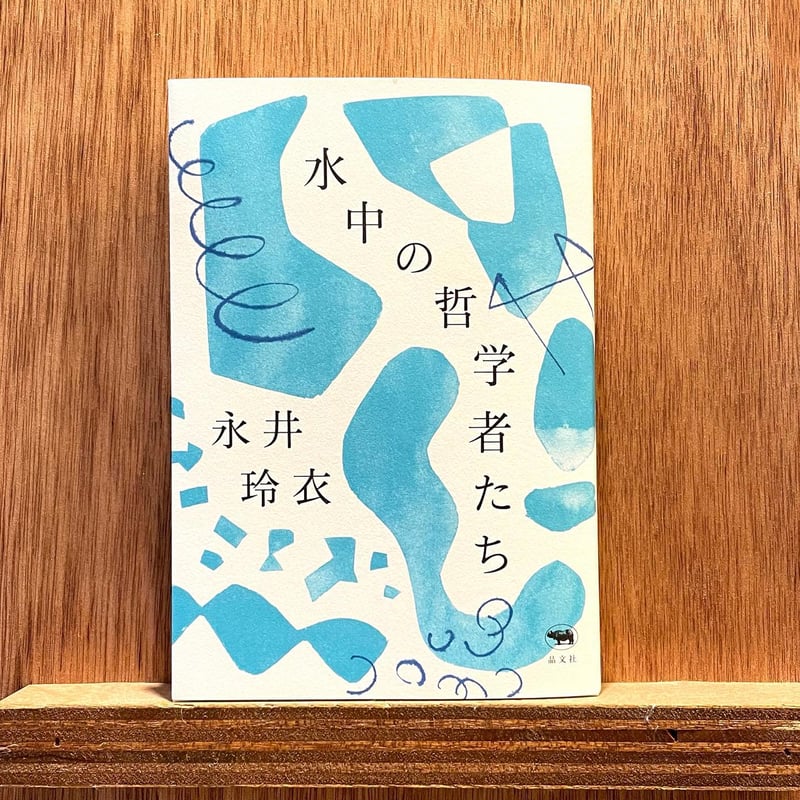 水中の哲学者たち
永井
玲衣
晶文社